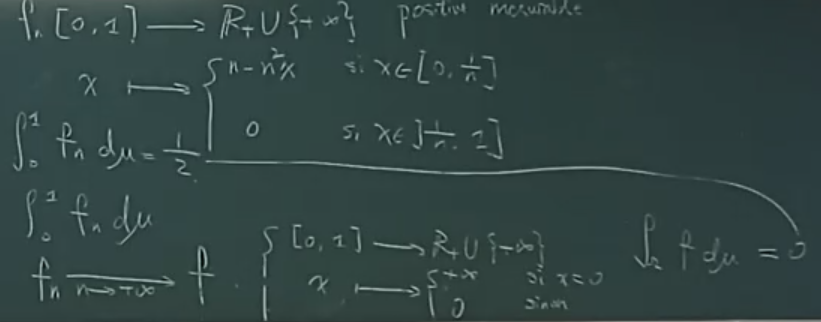 fₙ [0,1] ⟶ ℝ₊ ∪ {+∞} positive mesurable
x ⟼ { n-n²x si x∈[0, 1/n]
0 si x∈]1/n, 1]
∫₀¹ fₙ dμ = 1/2
∫₀¹ fₙ dμ
fₙ ⟶ n→+∞ f. { [0,1] ⟶ ℝ₊ ∪ {+∞}
x ⟼ { +∞ si x=0
0 sinon
f dμ = 0